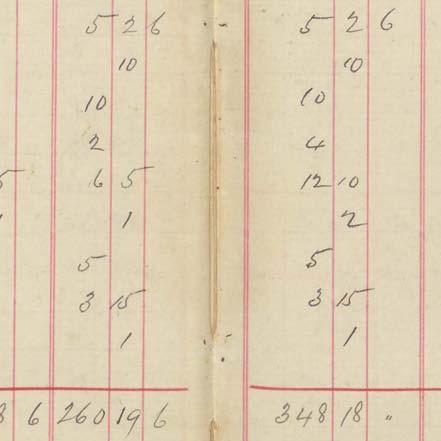 5 2 6 5 2 6
10 10
10 10
2 4
5 6 5 12 10
1 1 2
5 5
3 15 3 15
1 1
8 6 260 19 6 348 18 "